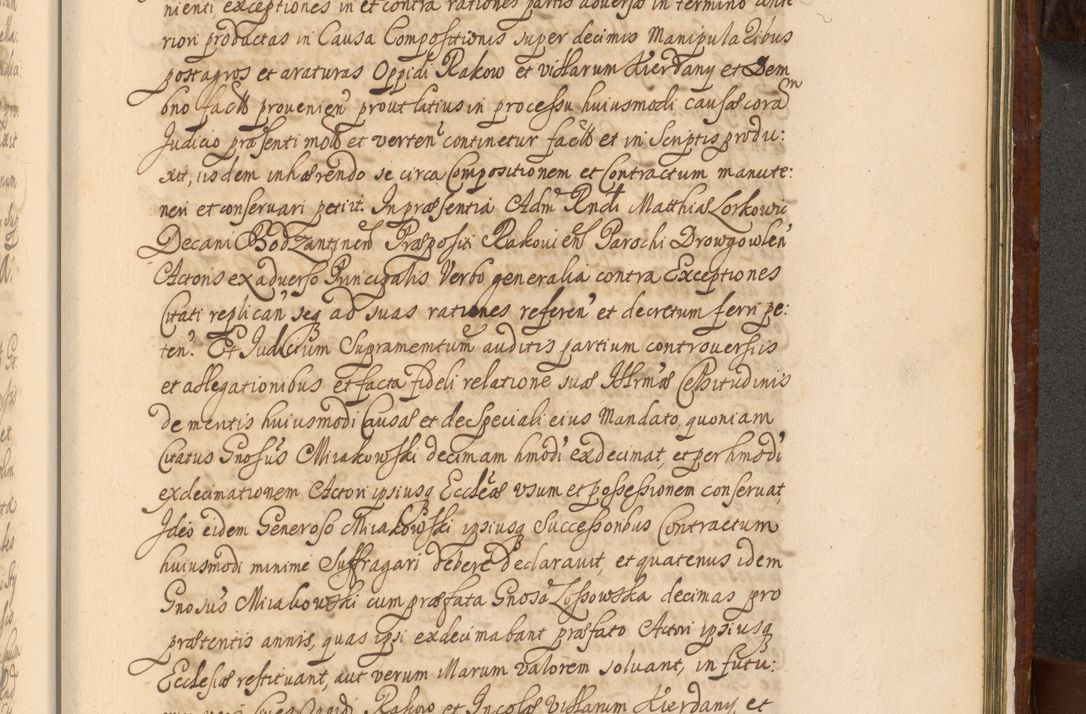 nienti exceptiones in et contra rationes partis adversæ in termino ante
riori productas in Causa Compositionis super decimis Manipulalibus
post agros et araturas Oppidi Rakow et villarum Kierdany et Dem
bno factt provenien prout latius in processu huiusmodi causæ coram
Judicio præsenti mott et verten continetur factt et in Scriptis produ:
xit, iisdem inhærendo se circa Compositionem et Contractum manute:
neri et conservari petiit. In præsentia Admᵈ Rndi Matthiæ Lorkowic
Decani Bodzantinen Præpositi Rakovien Parochi Drowgowlen
Actoris ex adverso Principalis Verbo generalia contra Exceptiones
Citati replican seq ad suas rationes referen et decretum ferri pe:
ten. Et Judicium Supramemtum auditis partium controversiis
et allegationibus et facta fideli relatione suæ Illrmæ Celsitudinis
de meritis huiusmodi Causæ et de Speciali eius Mandato, quoniam
Citatus Gnosus Mirakowski decimam hmodi exdecimat, et per hmodi
exdecimationem Actori ipsiusq Ecclēæ usum et possessionem conservat,
Ideo eidem Generoso Mirakowski ipsiusq Successoribus Contractum
huiusmodi minime Suffragari debere Declaravit, et quatenus idem
Gnosus Mirakowski cum præfata Gnosa Lossowska decimas pro
prætentis annis, quas ipsi exdecimabant præfato Actori ipsiusq
Ecclesiæ restituant, aut verum illarum valorem solvant, in futu:
Oppidi Rakow et Incolæ villarum Kierdany, et